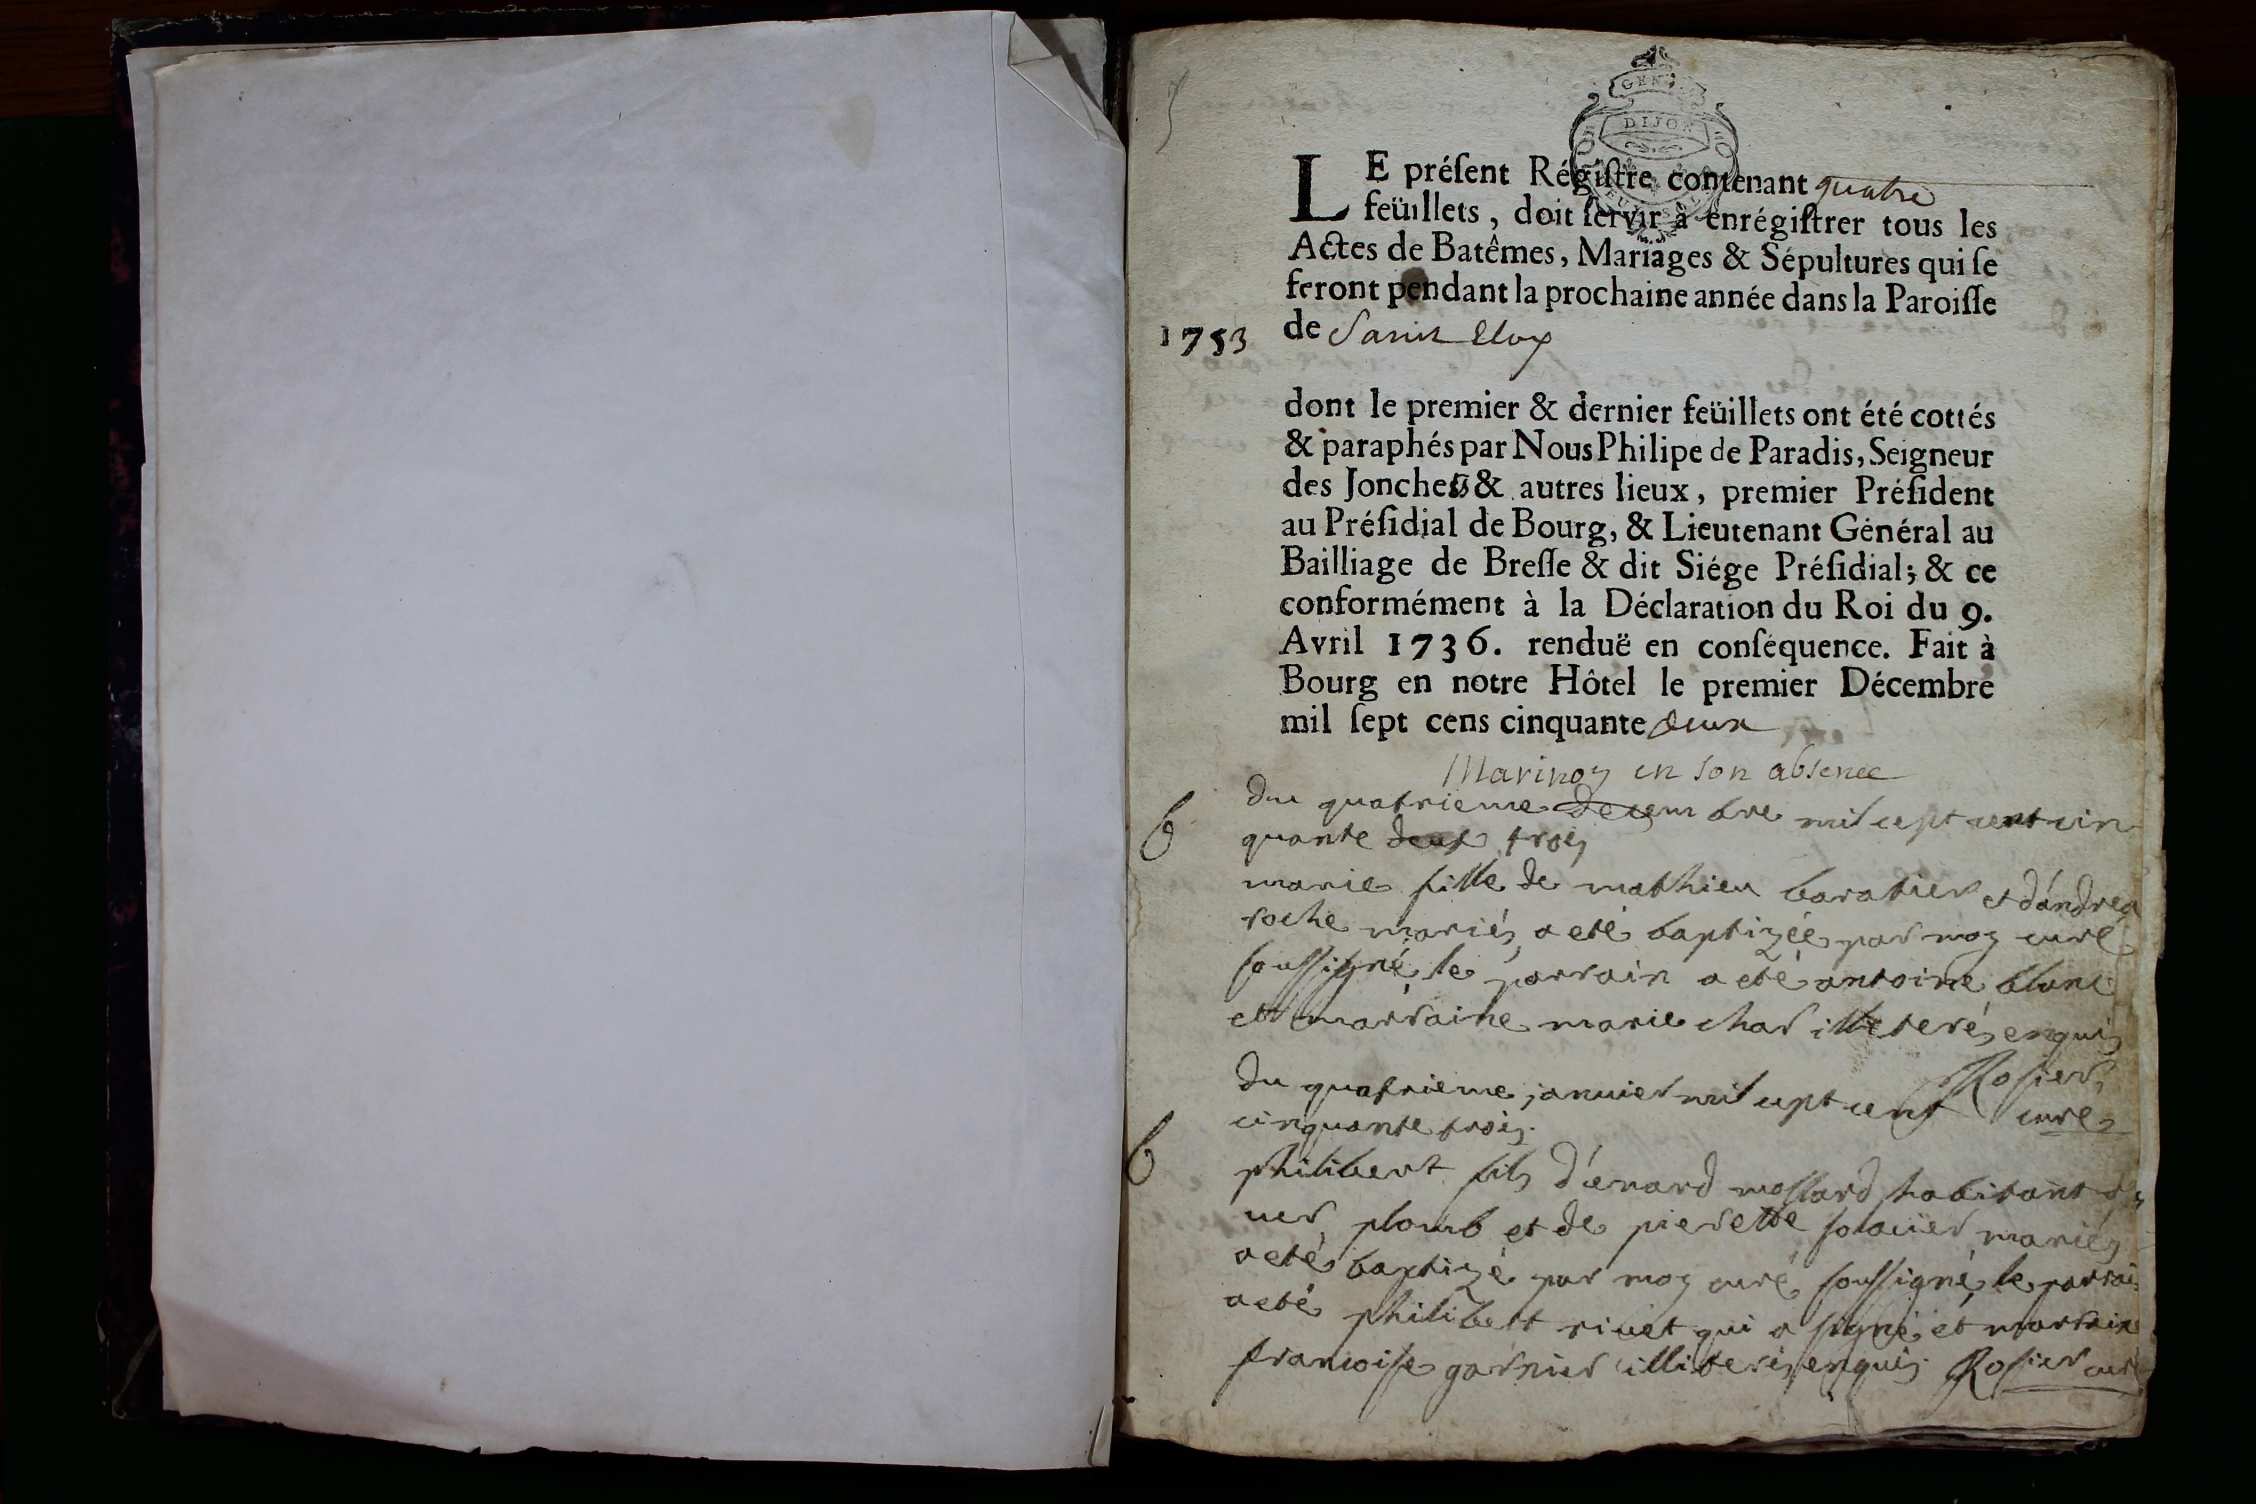 GEN
DIJON
LE préſent Régiſtre contenant quatre
feüillets, doit ſervir à enrégiſtrer tous les
Actes de Batêmes, Mariages & Sépultures qui ſe
feront pendant la prochaine année dans la Paroiſſe
1753 de Saint Eloy
dont le premier & dernier feüillets ont été cottés
& paraphés par Nous Philipe de Paradis, Seigneur
des Jonches & autres lieux, premier Préſident
au Préſidial de Bourg, & Lieutenant Général au
Bailliage de Breſſe & dit Siége Préſidial; & ce
conformément à la Déclaration du Roi du 9.
Avril 1736. renduë en conſéquence. Fait à
Bourg en notre Hôtel le premier Décembre
mil ſept cens cinquante deux
en son absence
du quatrieme decembre mil cept cent cin
b quante deux trois
marie fille de mathieu baratier et d'andrea
roche mariés a eté baptizée par moy curé
soussigné le parrain a eté antoine blanc
et marraine marie char illiterés enquis
Rosier
du quatrieme janvier mil cept cent curé
cinquante trois
b philibert fils d'enard mollard habitant
plomb et de pierette mariés
a eté baptizé par moy curé soussigné le parrai
a eté philibert rivet qui a signé et marrain
francoise garnier illiteris enquis Rosier curé